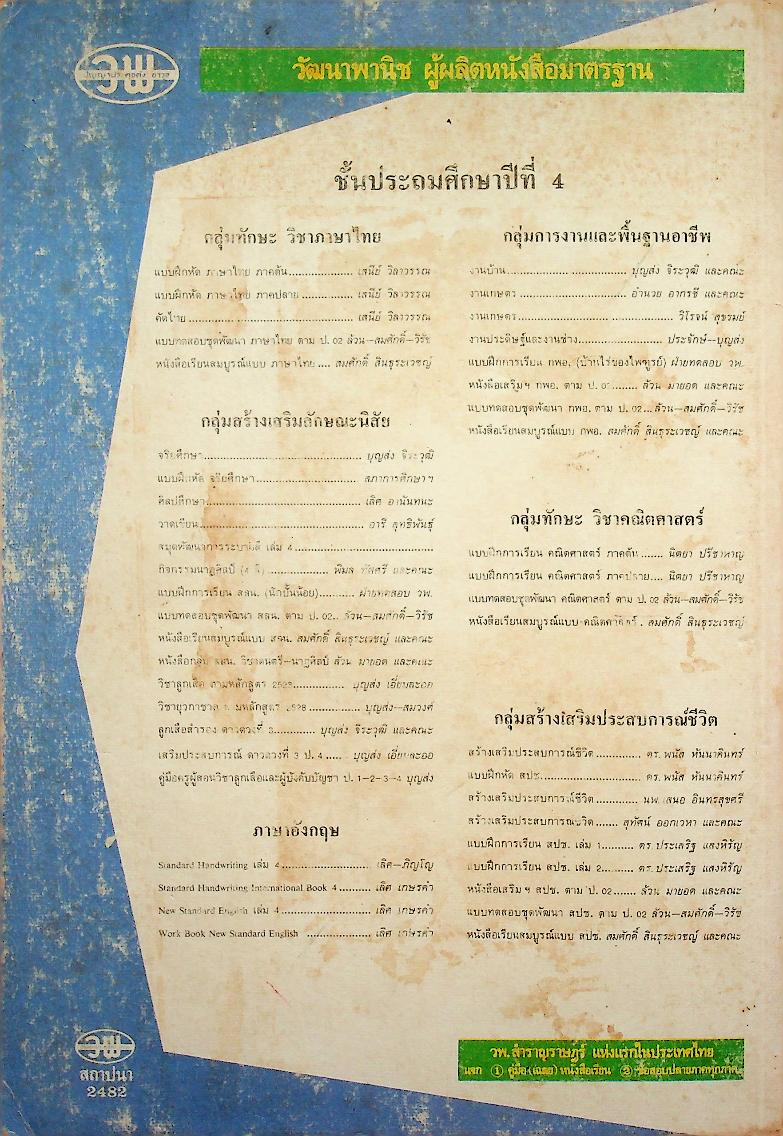 วพ
วัฒนาพานิช ผู้ผลิตหนังสือมาตรฐาน
ชั้นประถมศึกษาปีที่ 4
กลุ่มทักษะ วิชาภาษาไทย
แบบฝึกหัด ภาษาไทย ภาคต้น.................. เสนีย์ วิลาวรรณ
แบบฝึกหัด ภาษาไทย ภาคปลาย.............. เสนีย์ วิลาวรรณ
คัดไทย.......................................... เสนีย์ วิลาวรรณ
แบบทดสอบชุดพัฒนา ภาษาไทย ตาม ป. 02 ล้วน–สมศักดิ์–วิรัช
หนังสือเรียนสมบูรณ์แบบ ภาษาไทย.... สมศักดิ์ สินธุระเวชญ์
กลุ่มสร้างเสริมลักษณะนิสัย
จริยศึกษา........................................ บุญส่ง จิระวุฒิ
แบบฝึกหัด จริยศึกษา......................... สภาการศึกษาฯ
ศิลปศึกษา....................................... เลิศ อานันทนะ
วาดเขียน.......................................... อารี สุทธิพันธุ์
สมุดพัฒนาการระบายสี เล่ม 4...................................
กิจกรรมนาฏศิลป์ (4 สี)............... พิมล ทัศศรี และคณะ
แบบฝึกการเรียน สลน. (นักปั้นน้อย)......... ฝ่ายทดสอบ วพ.
แบบทดสอบชุดพัฒนา สลน. ตาม ป. 02.. ล้วน–สมศักดิ์–วิรัช
หนังสือเรียนสมบูรณ์แบบ สลน. สมศักดิ์ สินธุระเวชญ์ และคณะ
หนังสือกลุ่ม สลน. วิชาดนตรี–นาฏศิลป์ ล้วน มายอด และคณะ
วิชาลูกเสือ ตามหลักสูตร 2528............... บุญส่ง เอี่ยมละออ
วิชายุวกาชาด ตามหลักสูตร 2528............ บุญส่ง–สมวงศ์
ลูกเสือสำรอง ดาวดวงที่ 3......... บุญส่ง จิระวุฒิ และคณะ
เสริมประสบการณ์ ดาวดวงที่ 3 ป. 4..... บุญส่ง เอี่ยมละออ
คู่มือครูผู้สอนวิชาลูกเสือและผู้บังคับบัญชา ป. 1–2–3–4 บุญส่ง
ภาษาอังกฤษ
Standard Handwriting เล่ม 4...................... เลิศ–ภิญโญ
Standard Handwriting International Book 4......... เลิศ เกษรคำ
New Standard English เล่ม 4...................... เลิศ เกษรคำ
Work Book New Standard English ................ เลิศ เกษรคำ
กลุ่มการงานและพื้นฐานอาชีพ
งานบ้าน............................ บุญส่ง จิระวุฒิ และคณะ
งานเกษตร......................... อำนวย อาภรชี และคณะ
งานเกษตร..................................... วิโรจน์ สุขรมย์
งานประดิษฐ์และงานช่าง..................... ประจักษ์–บุญส่ง
แบบฝึกการเรียน กพอ. (บ้านไร่ของไพฑูรย์) ฝ่ายทดสอบ วพ.
หนังสือเสริมฯ กพอ. ตาม ป. 02....... ล้วน มายอด และคณะ
แบบทดสอบชุดพัฒนา กพอ. ตาม ป. 02... ล้วน–สมศักดิ์–วิรัช
หนังสือเรียนสมบูรณ์แบบ กพอ. สมศักดิ์ สินธุระเวชญ์ และคณะ
กลุ่มทักษะ วิชาคณิตศาสตร์
แบบฝึกการเรียน คณิตศาสตร์ ภาคต้น...... นิตยา ปรีชาหาญ
แบบฝึกการเรียน คณิตศาสตร์ ภาคปลาย.... นิตยา ปรีชาหาญ
แบบทดสอบชุดพัฒนา คณิตศาสตร์ ตาม ป. 02 ล้วน–สมศักดิ์–วิรัช
หนังสือเรียนสมบูรณ์แบบ คณิตศาสตร์ . สมศักดิ์ สินธุระเวชญ์
กลุ่มสร้างเสริมประสบการณ์ชีวิต
สร้างเสริมประสบการณ์ชีวิต............ ดร. พนัส หันนาคินทร์
แบบฝึกหัด สปช........................... ดร. พนัส หันนาคินทร์
สร้างเสริมประสบการณ์ชีวิต.......... นพ. เสนอ อินทรสุขศรี
สร้างเสริมประสบการณ์ชีวิต....... สุทัศน์ ออกเวหา และคณะ
แบบฝึกการเรียน สปช. เล่ม 1......... ดร. ประเสริฐ แสงหิรัญ
แบบฝึกการเรียน สปช. เล่ม 2......... ดร. ประเสริฐ แสงหิรัญ
หนังสือเสริมฯ สปช. ตาม ป. 02....... ล้วน มายอด และคณะ
แบบทดสอบชุดพัฒนา สปช. ตาม ป. 02 ล้วน–สมศักดิ์–วิรัช
หนังสือเรียนสมบูรณ์แบบ สปช. สมศักดิ์ สินธุระเวชญ์ และคณะ
วพ
สถาปนา
2482
วพ. สำราญราษฎร์ แห่งแรกในประเทศไทย
แจก ① คู่มือ (เฉลย) หนังสือเรียน ② ข้อสอบปลายภาคทุกภาค